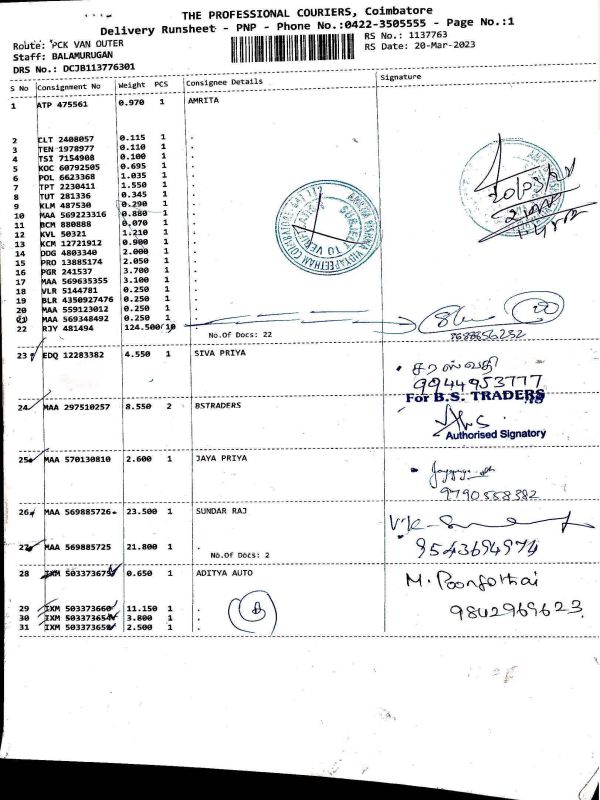 THE PROFESSIONAL COURIERS, Coimbatore
Delivery Runsheet - PNP - Phone No.:0422-3505555 - Page No.:1
Route: PCK VAN OUTER
RS No.: 1137763
Staff: BALAMURUGAN
RS Date: 20-Mar-2023
DRS No.: DCJB113776301
S No Consignment No Weight PCS Consignee Details Signature
1 ATP 475561 0.970 1 AMRITA
2 CLT 2408057 0.115 1 .
3 TEN 1978977 0.110 1 .
4 TSI 7154908 0.100 1 .
5 KOC 60792505 0.695 1 .
6 POL 6623368 1.035 1 .
7 TPT 2230411 1.550 1 .
8 TUT 281336 0.345 1 .
9 KLM 487530 0.290 1 .
10 MAA 569223316 0.880 1 .
11 BCM 880888 0.070 1 .
12 KVL 50321 1.210 1 .
13 KCM 12721912 0.900 1 .
14 DDG 4803340 2.000 1 .
15 PRO 13885174 2.050 1 .
16 PGR 241537 3.700 1 .
17 MAA 569635355 3.100 1 .
18 VLR 5144781 0.250 1 .
19 BLR 4350927476 0.250 1 .
20 MAA 559123012 0.250 1 .
21 MAA 569348492 0.250 1 .
22 RJY 481494 124.500 10
No.Of Docs: 22
23 EDQ 12283382 4.550 1 SIVA PRIYA
சரஸ்வதி
9944953777
24 MAA 297510257 8.550 2 BSTRADERS
For B.S. TRADERS
Authorised Signatory
25 MAA 570130810 2.600 1 JAYA PRIYA
9790558382
26 MAA 569885726 23.500 1 SUNDAR RAJ
27 MAA 569885725 21.800 1 .
No.Of Docs: 2
9543694974
28 IXM 503373675 0.650 1 ADITYA AUTO
M. Poongothai
9842969623.
29 IXM 503373660 11.150 1 .
30 IXM 503373654 3.800 1 .
31 IXM 503373652 2.500 1 .